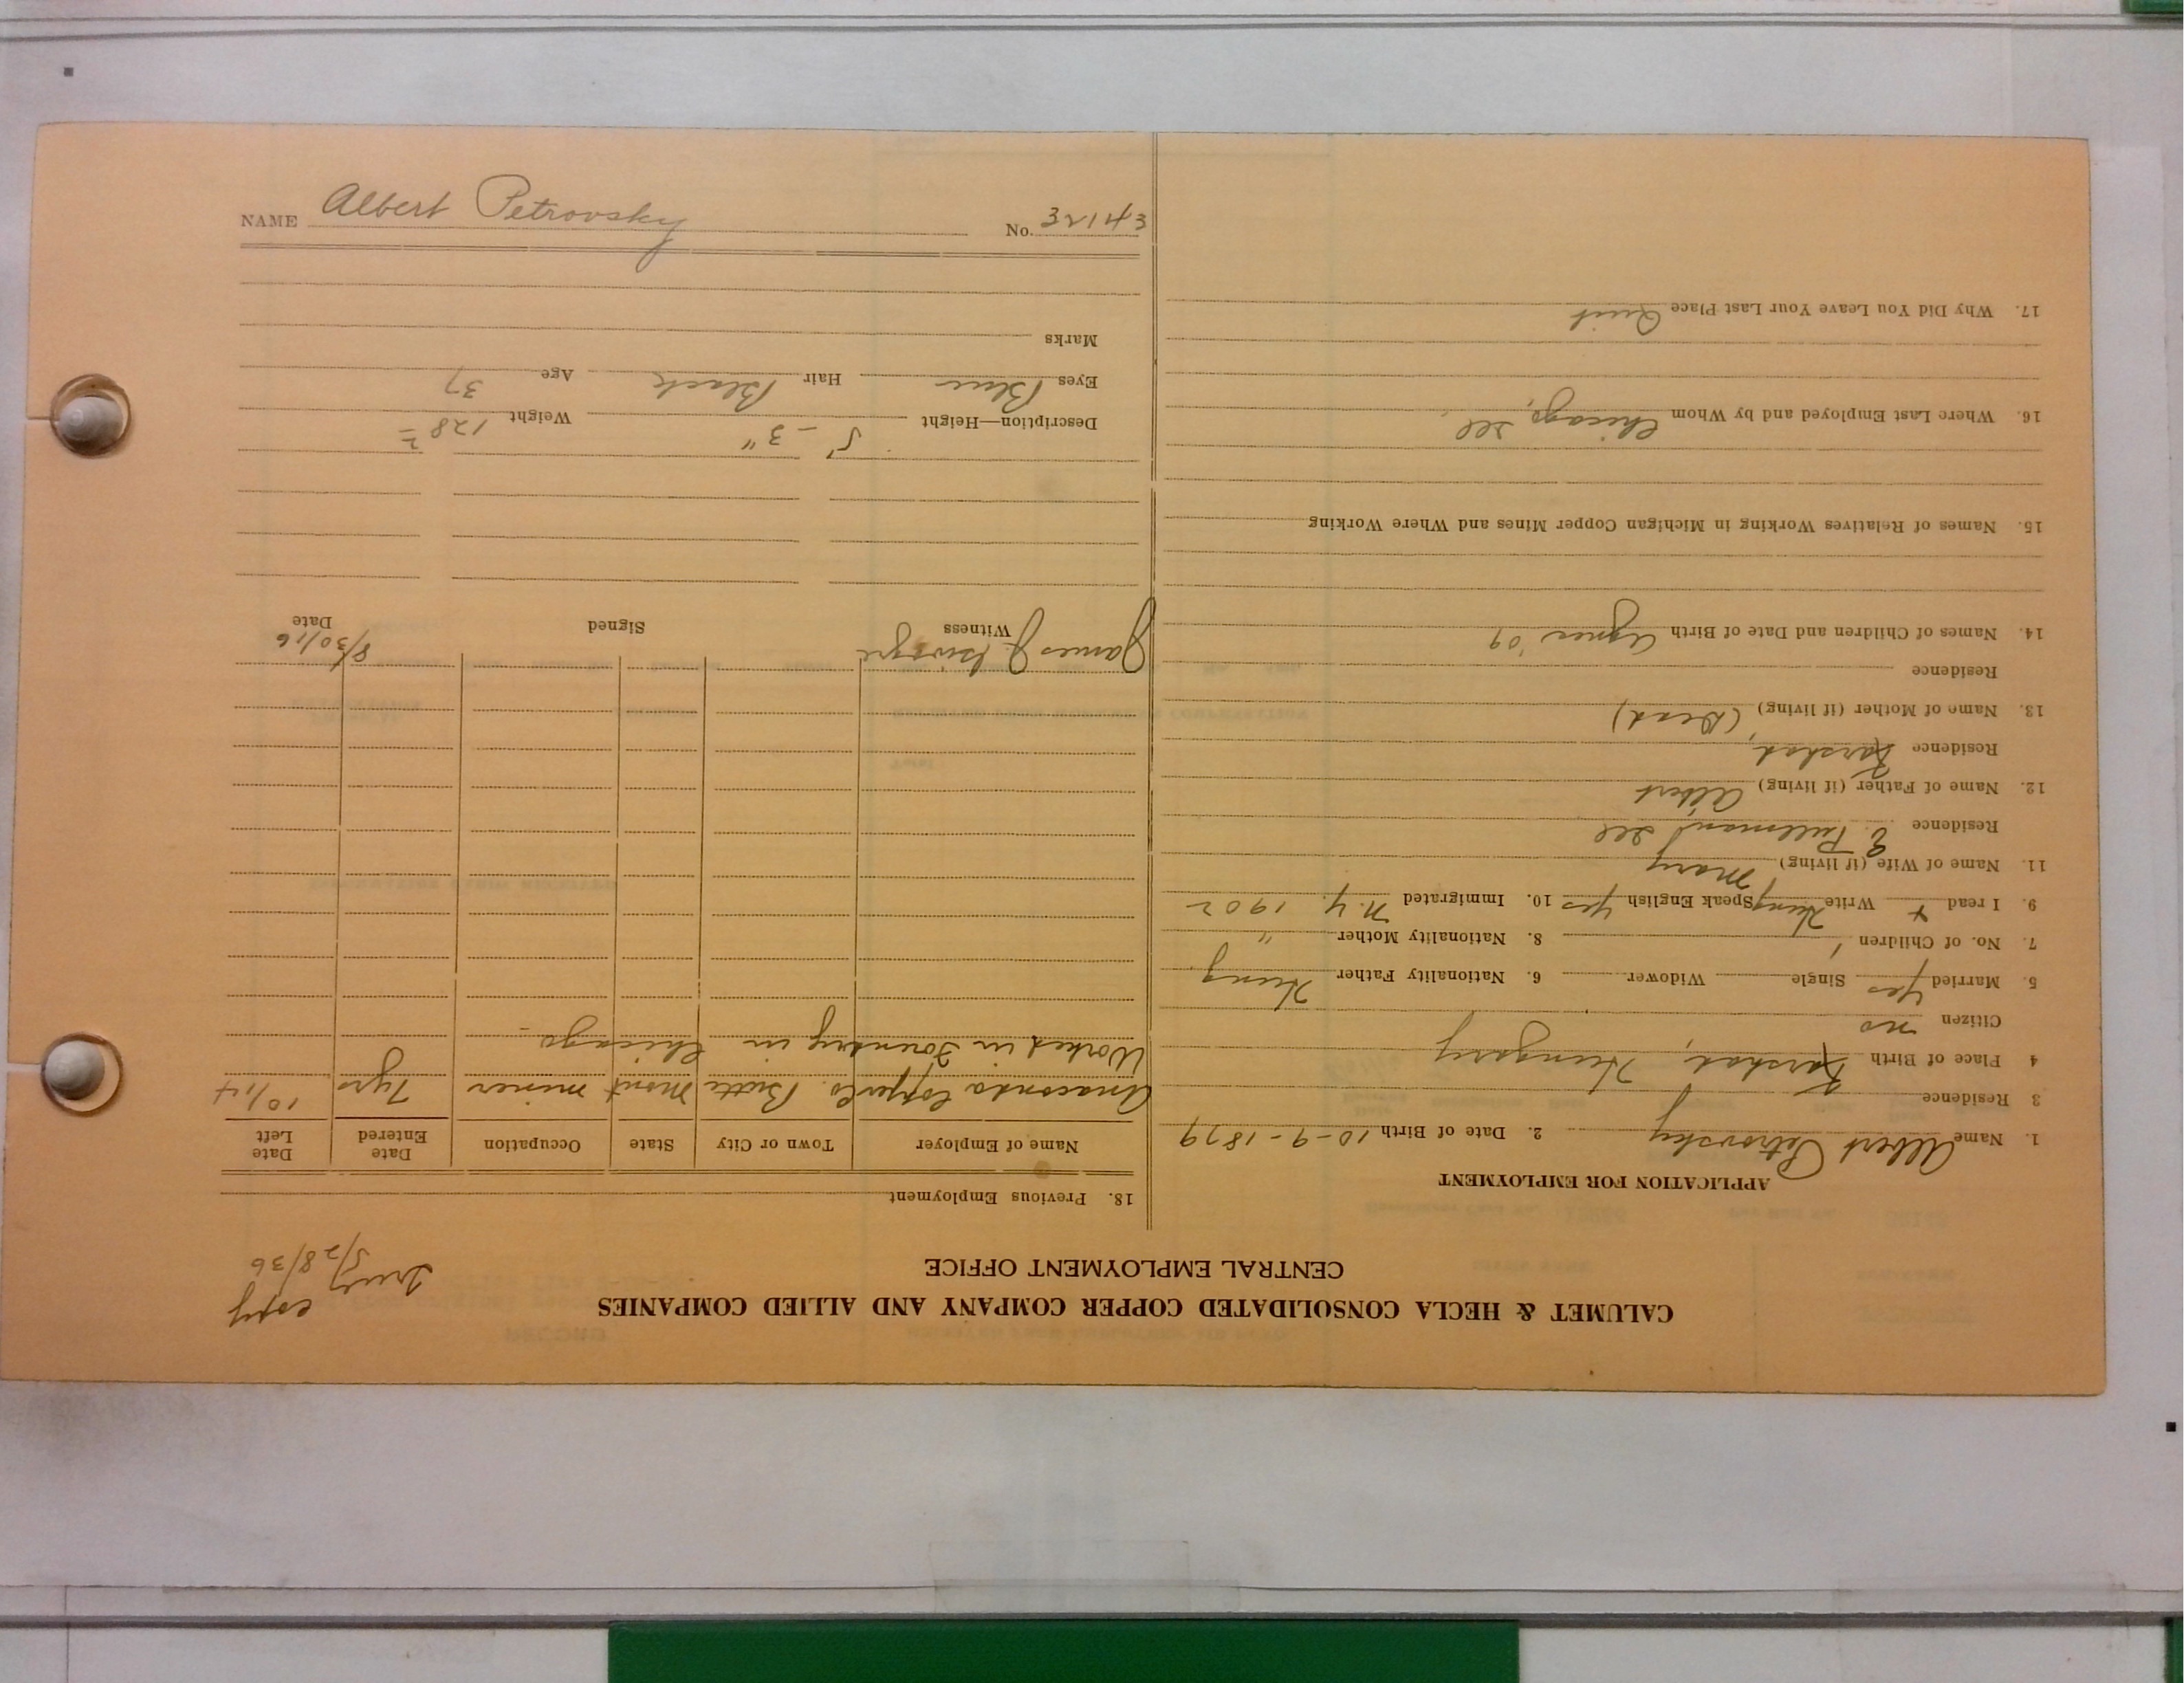 CALUMET & HECLA CONSOLIDATED COPPER COMPANY AND ALLIED COMPANIES
CENTRAL EMPLOYMENT OFFICE
copy
5/28/36
APPLICATION FOR EMPLOYMENT
1. Name Albert Petrovsky 2. Date of Birth 10-9-1879
3 Residence
4 Place of Birth Karshat, Hungary
Citizen no
5. Married yes Single Widower 6. Nationality Father Hung
7. No. of Children 1 8. Nationality Mother "
9. I read + Write Hung Speak English yes 10. Immigrated N.Y. 1902
11. Name of Wife (if living) Mary
Residence E. Pullman Ill
12. Name of Father (if living) Albert
Residence Karshat
13. Name of Mother (if living) (Dead)
Residence
14. Names of Children and Date of Birth Agnes '09
15. Names of Relatives Working in Michigan Copper Mines and Where Working
16. Where Last Employed and by Whom Chicago, Ill
17. Why Did You Leave Your Last Place Quit
18. Previous Employment
Name of Employer Town or City State Occupation Date Entered Date Left
Anaconda Copper Co. Butte Mont miner 7yrs 10/14
Worked in Foundry in Chicago
James J.
8/30/16
Witness Signed Date
Description—Height 5'-3" Weight 128
Eyes Blue Hair Black Age 37
Marks
NAME Albert Petrovsky No. 32143